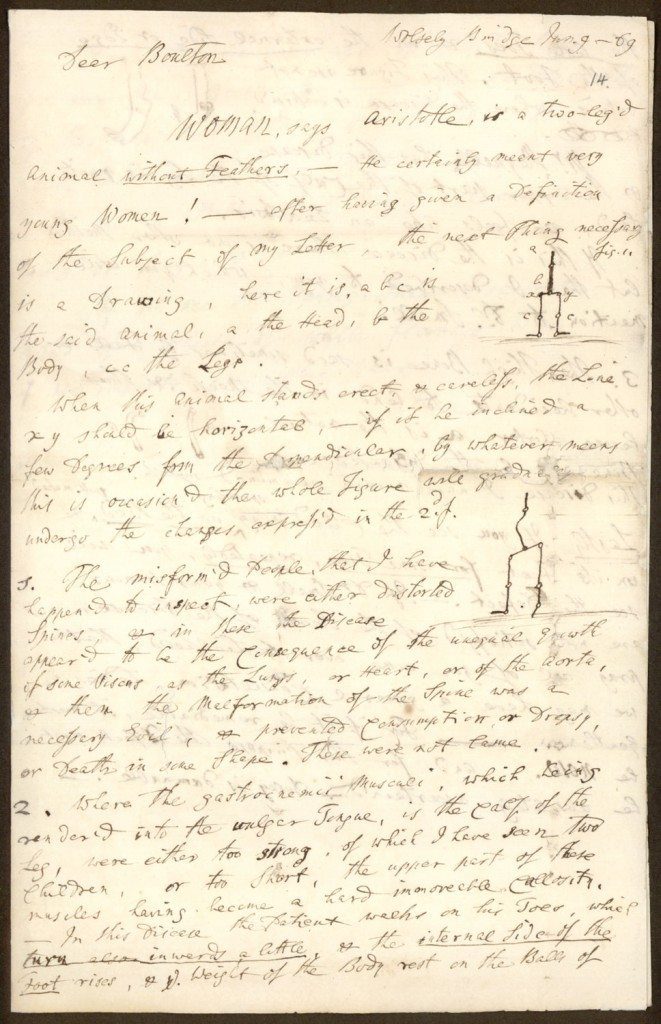 Wolsely Bridge Jun. 9 - 69
14.
Dear Boulton
Woman, says Aristotle, is a two-leg'd
animal without Feathers, — He certainly meant very
young Women! — after having given a Definition
of the Subject of my Letter the next Thing necessary
is a Drawing, here it is, a b c is
a fig. 1.
b
x y
c c
the said animal, a the Head, b the
Body, cc the Legs.
When this animal stands erect & careless, the Line
x y should be horizontal, — if it be inclined a
few Degrees from the Perpendicular, by whatever means
this is occasion'd the whole Figure will
undergo the changes express'd in the 2d f.
1. The misform'd People, that I have
happen'd to inspect, were either distorted
Spines, & in these the Disease
appear'd to be the Consequence of the unequal growth
of some Viscus, as the Lungs, or Heart, or of the Aorta,
& then the Malformation of the Spine was a
necessary Evil, & prevented Consumption or Dropsy,
or Death in some Shape. These were not lame.
2. Where the gastrocnemii Musculi, which being
render'd into the vulgar Tongue, is the Calf of the
Leg, were either too strong, of which I have seen two
Children, or too short, the upper part of these
muscles having become a hard immoveable Callosity.
— In this Disease the Patient walks on his Toes, which
turn also inwards a little, & the internal Side of the
Foot rises, & ye. Weight of the Body rest on the Balls of